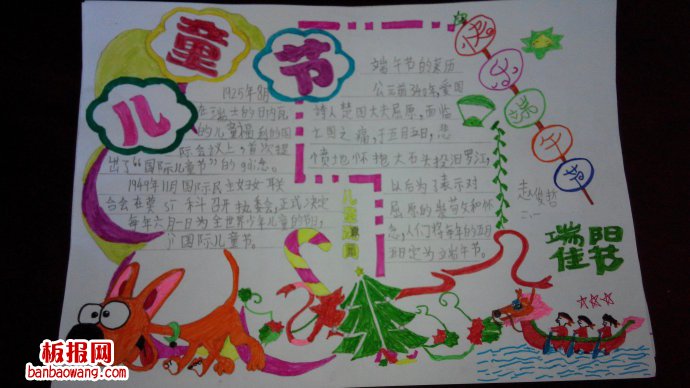 儿童节
1925年8月
在瑞士的日内瓦
的儿童福利的国
际会议上,首次提
出了“国际儿童节”的
1949年11月国际民主妇女联
合会在莫斯科召开执委会,正式决定
每年六月一日为全世界少年儿童的节日,
国际儿童节。
儿童
端午节的来历
公元前340年,爱国
诗人楚国大夫屈原,面临
亡国之痛,于五月五日,悲
愤地怀抱大石头投汨罗江,
以后为了表示对
屈原的崇敬和怀
念,人们将每年的五月
五日定为端午节。
快乐端午节
赵俊哲
二.一
端阳
佳节
板报网
banbaowang.com